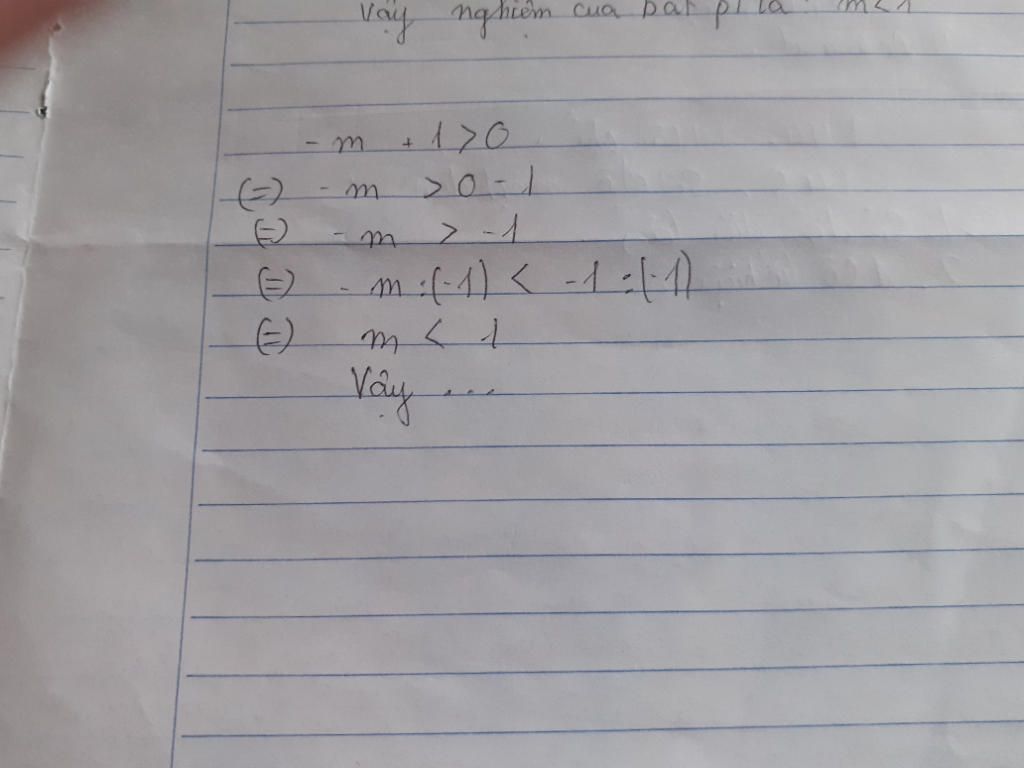 Vậy nghiệm của bất pt là m < 1
- m + 1 > 0
(=) - m > 0 - 1
(=) - m > -1
(=) - m : (-1) < -1 : (-1)
(=) m < 1
Vậy ...